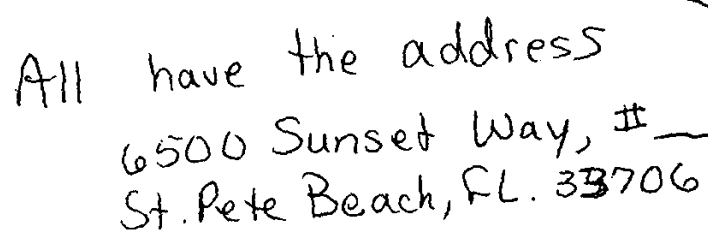 All have the address
6500 Sunset Way, #__
St. Pete Beach, FL. 33706